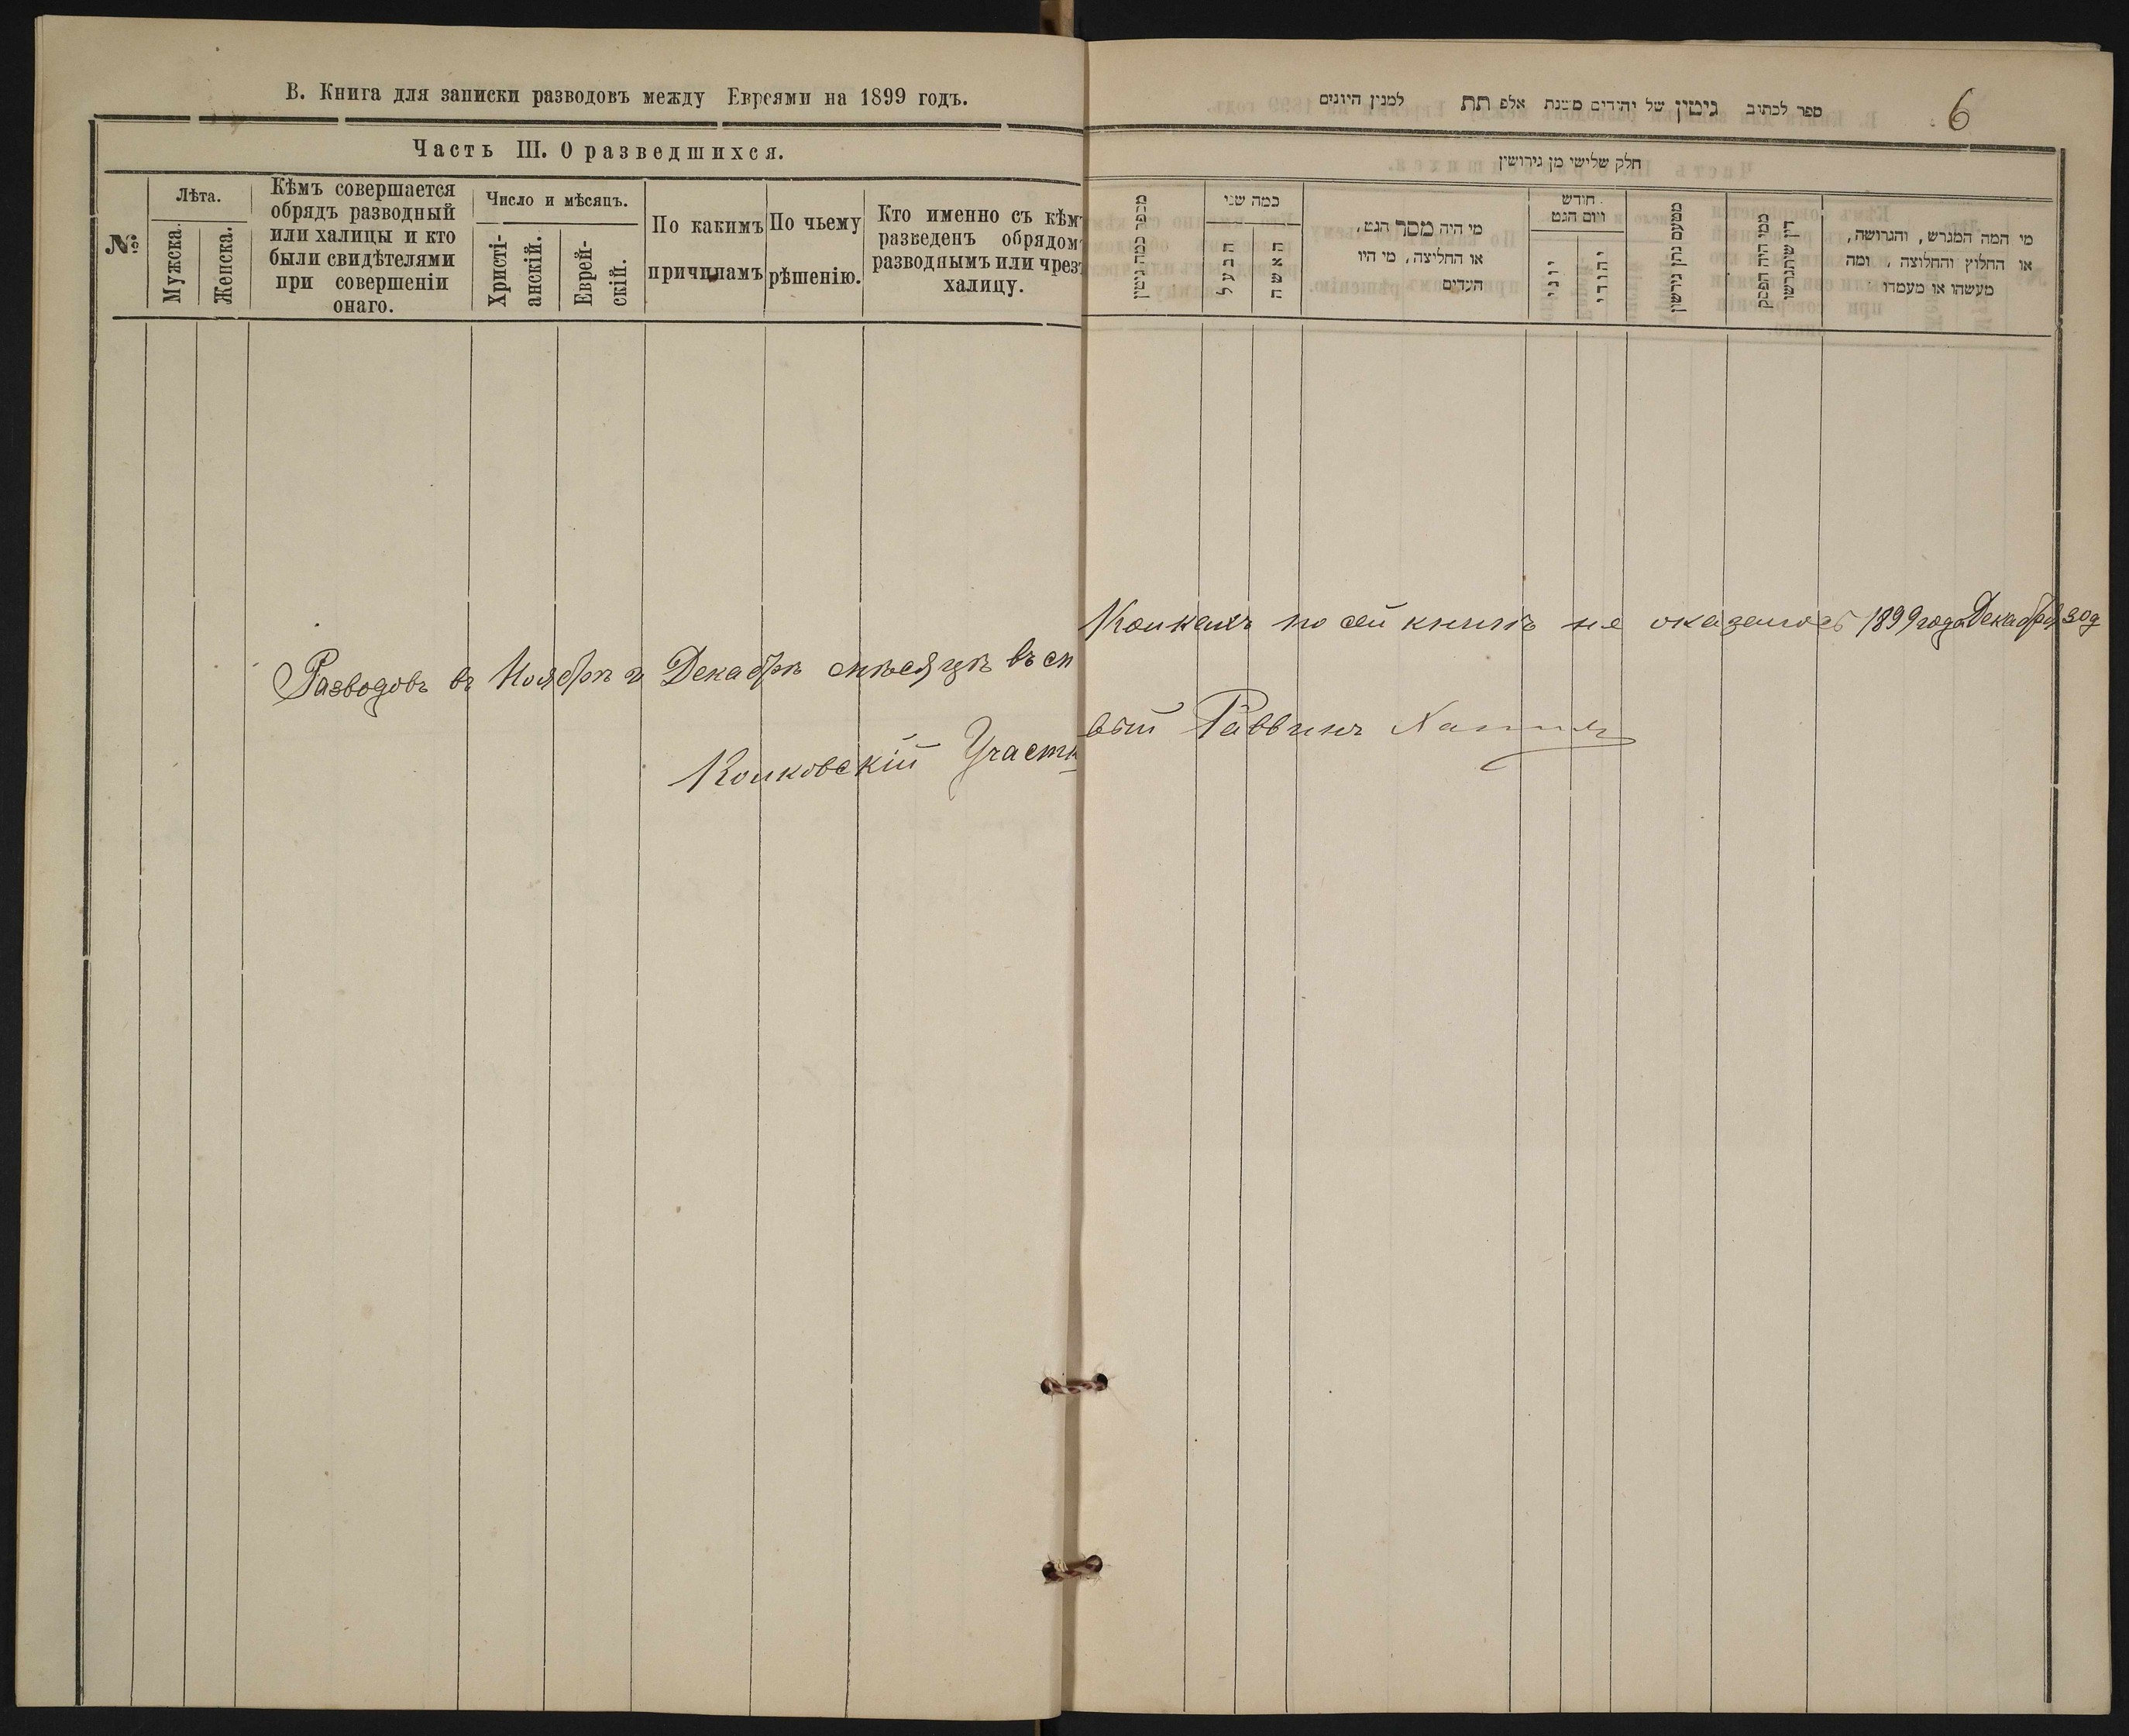 В. Книга для записки разводовъ между Евреями на 1899 годъ.
Часть III. О разведшихся.
№
Лѣта.
Мужска.
Женска.
Кѣмъ совершается
обрядъ разводный
или халицы и кто
были свидѣтелями
при совершеніи
онаго.
Число и мѣсяцъ.
Христі-
анскій.
Еврей-
скій.
По какимъ
причинамъ
По чьему
рѣшенію.
Кто именно съ кѣм
разведенъ обрядом
разводнымъ или чрез
халицу.
Разводовъ въ Ноябрѣ и Декабрѣ мѣсяцѣ въ м
Колковскій Участк
6
ספר לכתוב גיטין של יהודים משנת אלפ תת למנין היונים
חלק שלישי מן גירושין
מספר כמה גיטין
כמה שני
הבעל
האשה
מי היה מסר הגט,
או החליצה, מי היו
העדים
חודש
ויום הגט
יוני
יהודי
מטעם נתן גירושין
כמי היה הפסק
דין שיתגרשו
מי המה המגרש, והגרושה,
או החלוץ והחלוצה, ומה
מעשהו או מעמדו
Колкахъ по сей книгѣ не оказалось 1899 года Декабря 30 д
вый Раввинъ